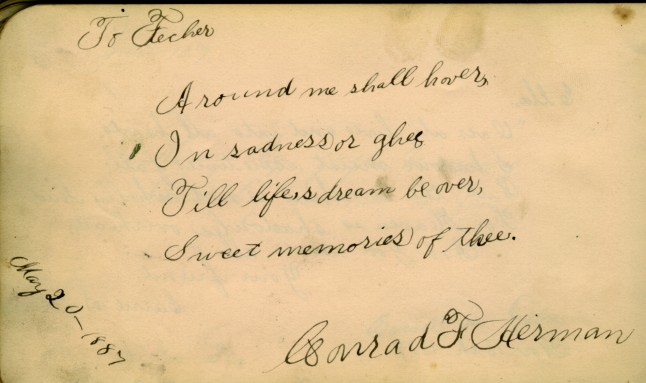 To Fecher
Around me shall hover,
In sadness or glee
Till life,s dream be over,
Sweet memories of thee.
May 20-1887
Conrad F Herman